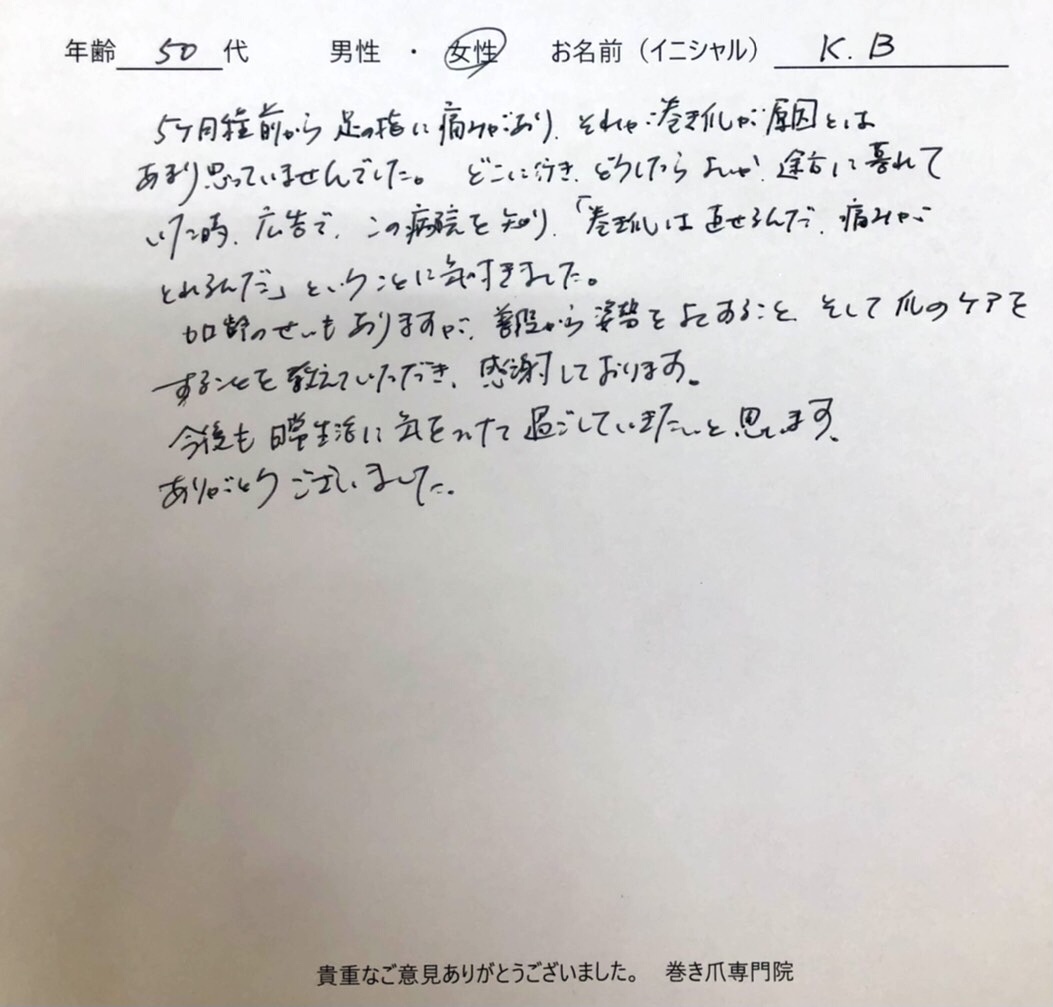 年齢 50 代 男性 ・ 女性 お名前（イニシャル） K.B
5ヶ月程前から足の指に痛みがあり、それが巻き爪が原因とは
あまり思っていませんでした。どこに行き、どうしたらよいか、途方に暮れて
いた時、広告で、この病院を知り、「巻き爪は直せるんだ、痛みが
とれるんだ」ということに気付きました。
加齢のせいもありますが、普段から姿勢をよくすること、そして爪のケアを
することを教えていただき、感謝しております。
今後も日常生活に気をつけて過ごしていきたいと思います。
ありがとうございました。
貴重なご意見ありがとうございました。 巻き爪専門院